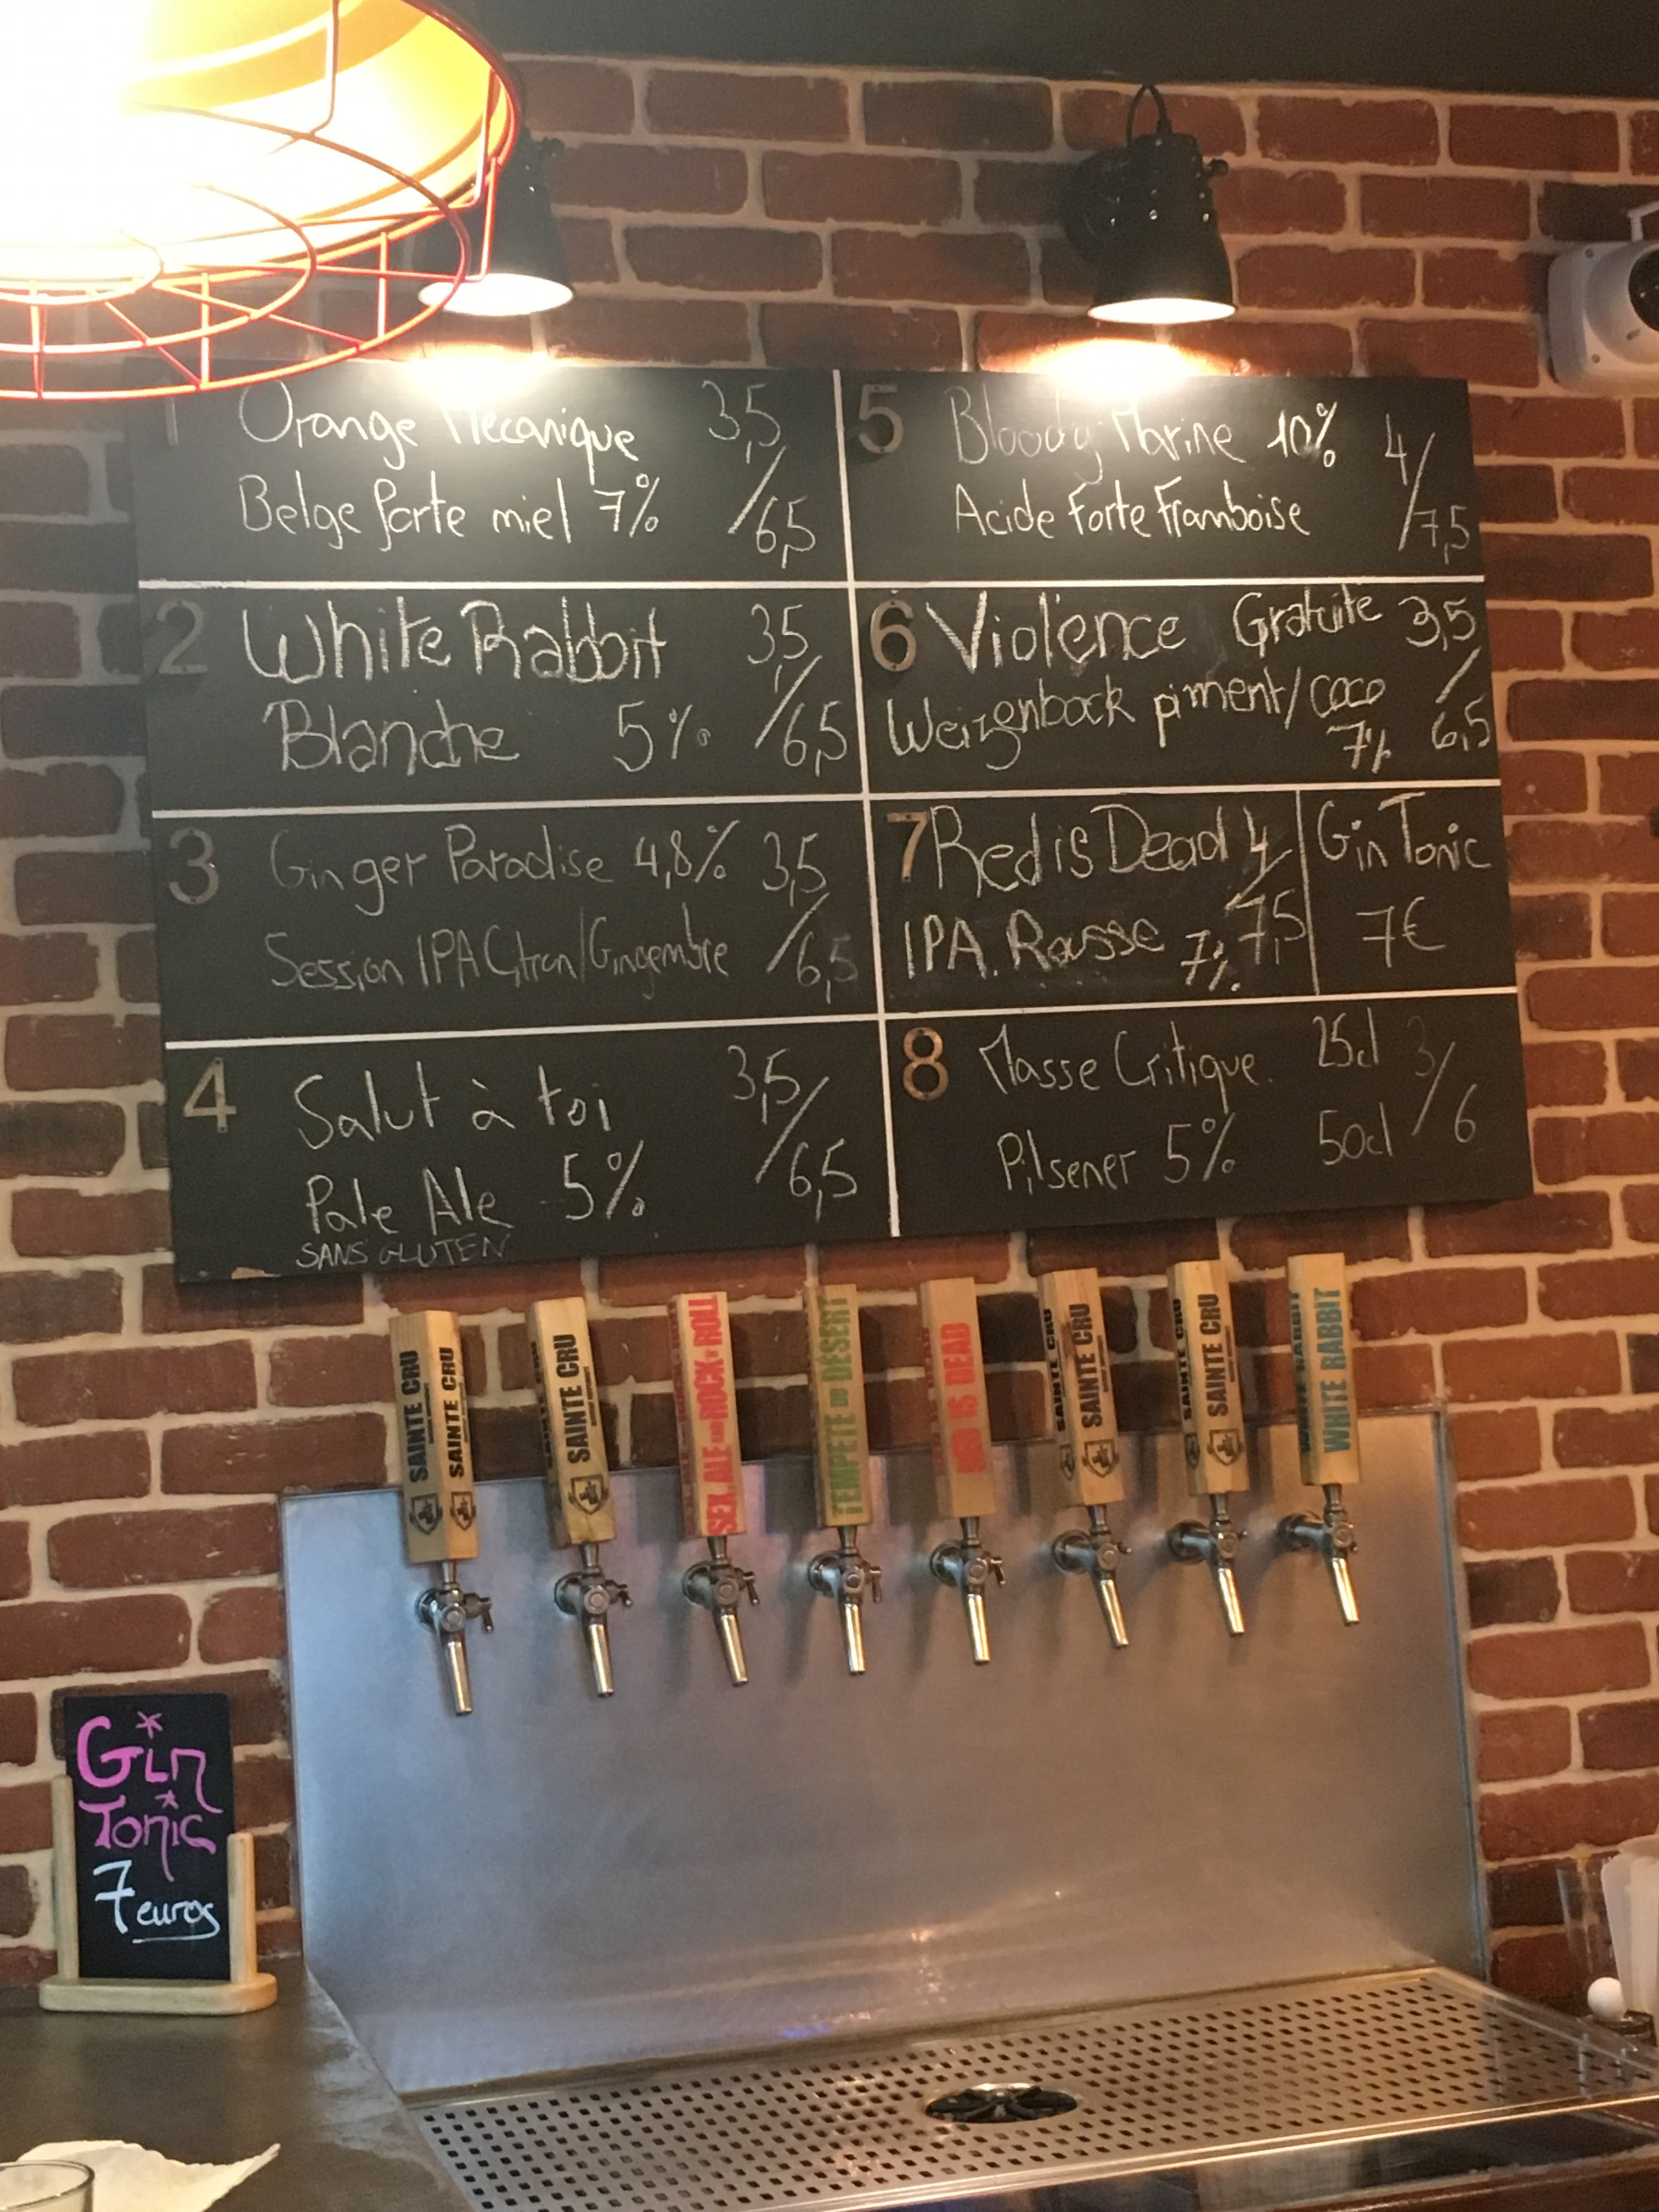 1 Orange Mécanique 3,5
Belge forte miel 7% /6,5
2 White Rabbit 3,5
Blanche 5% /6,5
3 Ginger Paradise 4,8% 3,5
Session IPA Citron/Gingembre /6,5
4 Salut à toi 3,5/
Pale Ale 5% 6,5
SANS GLUTEN
5 Bloody Marine 10% 4/
Acide Forte Framboise 7,5
6 Violence Gratuite 3,5
Weizenbock piment/coco /
7% 6,5
7 Red is Dead 4/
IPA. Rousse 7% 7,5
Gin Tonic
7€
8 Masse Critique. 25cl 3/
Pilsener 5% 50cl 6
SAINTE CRU
SAINTE CRU
SAINTE CRU
SEX, ALE AND ROCK'N'ROLL
TEMPETE DU DESERT
RED IS DEAD
SAINTE CRU
SAINTE CRU
SAINTE CRU
SAINTE CRU
WHITE RABBIT
WHITE RABBIT
Gin
Tonic
7 euros